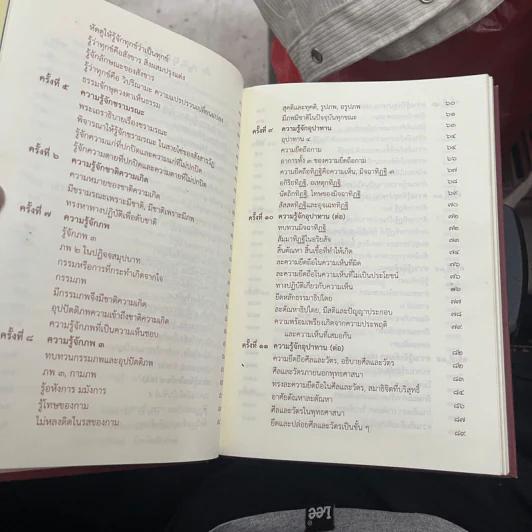 หัดดูให้รู้จักทุกข์ว่าเป็นทุกข์
รู้ว่าทุกข์คือสังขาร สิ่งผสมปรุงแต่ง
รู้จักลักษณะของสังขาร
รู้ว่าทุกข์คือ วิปริณามะ ความแปรปรวนเปลี่ยนแปลง
ธรรมจักษุดวงตาเห็นธรรม
ครั้งที่ ๕ ความรู้จักชรามรณะ
พระเถราธิบายเรื่องชรามรณะ
พิจารณาให้รู้จักชรามรณะ ในสายใยของสังสารวัฏ
รู้จักความแก่ที่ปกปิดและความแก่ที่ไม่ปกปิด
รู้จักความตายที่ปกปิดและความตายที่ไม่ปกปิด
ครั้งที่ ๖ ความรู้จักชาติความเกิด
ความหมายของชาติความเกิด
มีชรามรณะเพราะมีชาติ, มีชาติเพราะมีภพ
ทรงหาทางปฏิบัติเพื่อดับชาติ
ครั้งที่ ๗ ความรู้จักภพ
รู้จักภพ ๓
ภพ ๒ ในปฏิจจสมุปบาท
กรรมหรือการที่กระทำเกิดจากใจ
กรรมภพ
มีกรรมภพจึงมีชาติความเกิด
อุปปัตติภพความเข้าถึงชาติความเกิด
ความรู้จักภพที่เป็นความเห็นชอบ
ครั้งที่ ๘ ความรู้จักภพ ๓
ทบทวนกรรมภพและอุปปัตติภพ
ภพ ๓, กามภพ
รู้อหังการ มมังการ
รู้โทษของกาม
ไม่หลงติดในรสของกาม
สุคติและทุคติ, รูปภพ, อรูปภพ ๖๐
มีภพมีชาติในปัจจุบันทุกขณะ ๖๑
ครั้งที่ ๙ ความรู้จักอุปาทาน ๖๓
อุปาทาน ๔ ๖๔
ความยึดถือกาม ๖๔
อาการทั้ง ๓ ของความยึดถือกาม ๖๖
ความยึดถือทิฏฐิคือความเห็น, มิจฉาทิฏฐิ ๓ ๖๗
อกิริยทิฏฐิ, อเหตุกทิฏฐิ ๖๘
นัตถิกทิฏฐิ, โทษของมิจฉาทิฏฐิ ๖๙
สัสสตทิฏฐิและอุจเฉททิฏฐิ ๗๑
ครั้งที่ ๑๐ ความรู้จักอุปาทาน (ต่อ) ๗๒
ทบทวนมิจฉาทิฏฐิ ๗๒
สัมมาทิฏฐิในอริยสัจ ๗๓
สิ้นตัณหา สิ้นเชื้อที่ทำให้เกิด ๗๔
ละความยึดถือในความเห็นที่ผิด ๗๔
ละความยึดถือในความเห็นที่ไม่เป็นประโยชน์ ๗๕
ทางปฏิบัติเกี่ยวกับความเห็น ๗๖
ยึดหลักธรรมาธิปไตย ๗๗
ละตัณหาธิปไตย, มีสติและปัญญาประกอบ ๗๘
ความพร้อมเพรียงเกิดจากความประพฤติ
และความเห็นที่เสมอกัน
ครั้งที่ ๑๑ ความรู้จักอุปาทาน (ต่อ) ๘๒
ความยึดถือศีลและวัตร, อธิบายศีลและวัตร ๘๒
ศีลและวัตรภายนอกพุทธศาสนา
ทรงละความยึดถือในศีลและวัตร, สมาธิจิตที่บริสุทธิ์
อาศัยตัณหาละตัณหา ๘๖
ศีลและวัตรในพุทธศาสนา ๘๗
ยึดและปล่อยศีลและวัตรเป็นขั้น ๆ ๘๙
Lee